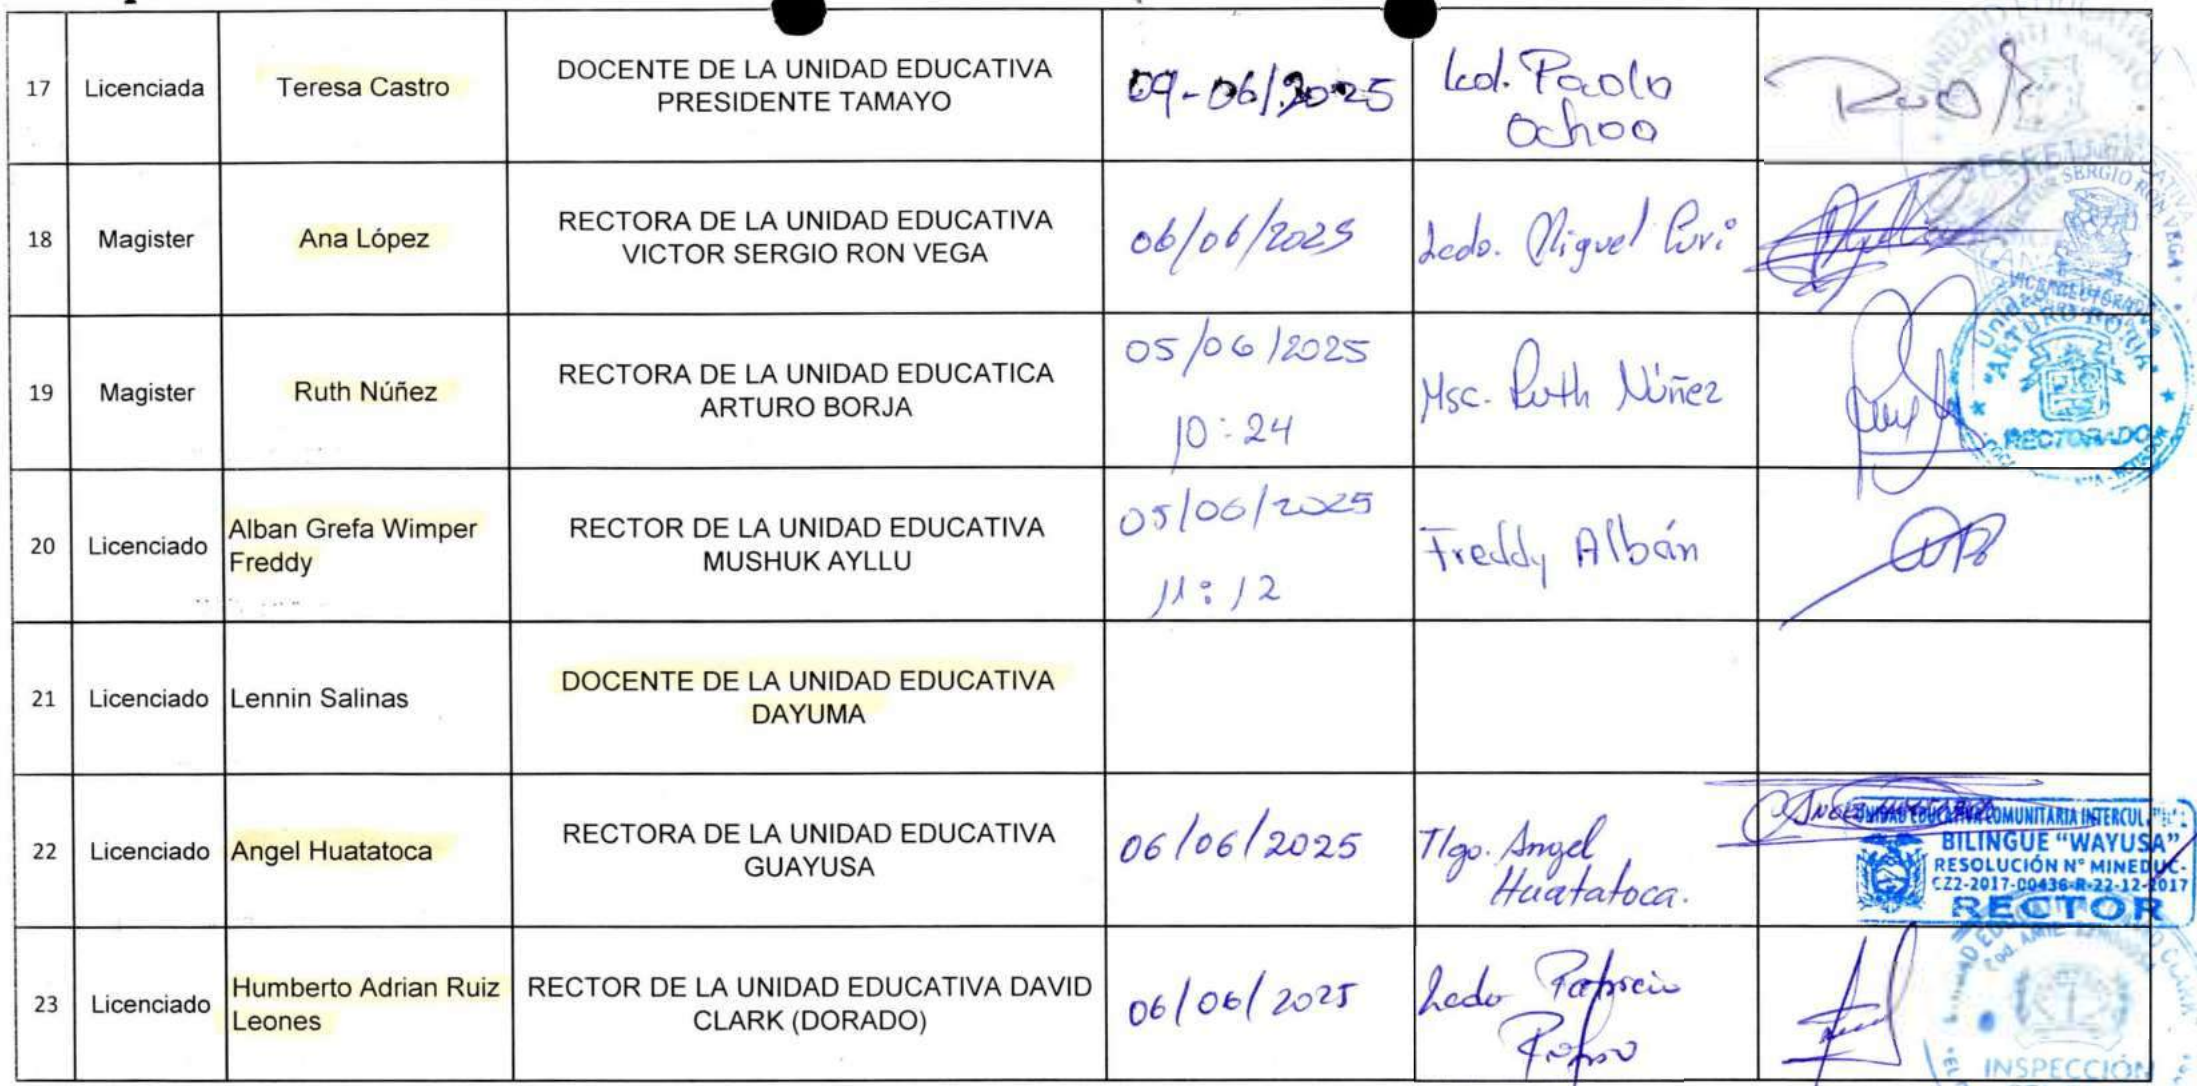 17
Licenciada
Teresa Castro
DOCENTE DE LA UNIDAD EDUCATIVA
PRESIDENTE TAMAYO
09-06/2025
Lcd. Paolo
Ochoa
18
Magister
Ana López
RECTORA DE LA UNIDAD EDUCATIVA
VICTOR SERGIO RON VEGA
06/06/2025
Lcdo. Miguel
SERGIO RON VEGA
19
Magister
Ruth Núñez
RECTORA DE LA UNIDAD EDUCATICA
ARTURO BORJA
05/06/2025
10:24
Msc. Ruth Núñez
"ARTURO BORJA"
RECTORADO
20
Licenciado
Alban Grefa Wimper
Freddy
RECTOR DE LA UNIDAD EDUCATIVA
MUSHUK AYLLU
05/06/2025
11:12
Freddy Albán
21
Licenciado
Lennin Salinas
DOCENTE DE LA UNIDAD EDUCATIVA
DAYUMA
22
Licenciado
Angel Huatatoca
RECTORA DE LA UNIDAD EDUCATIVA
GUAYUSA
06/06/2025
Tlgo. Angel
Huatatoca.
UNIDAD EDUCATIVA COMUNITARIA INTERCUL
BILINGUE "WAYUSA"
RESOLUCIÓN N° MINEDUC-
CZ2-2017-00436-R-22-12-2017
RECTOR
23
Licenciado
Humberto Adrian Ruiz
Leones
RECTOR DE LA UNIDAD EDUCATIVA DAVID
CLARK (DORADO)
06/06/2025
Lcdo
INSPECCIÓN